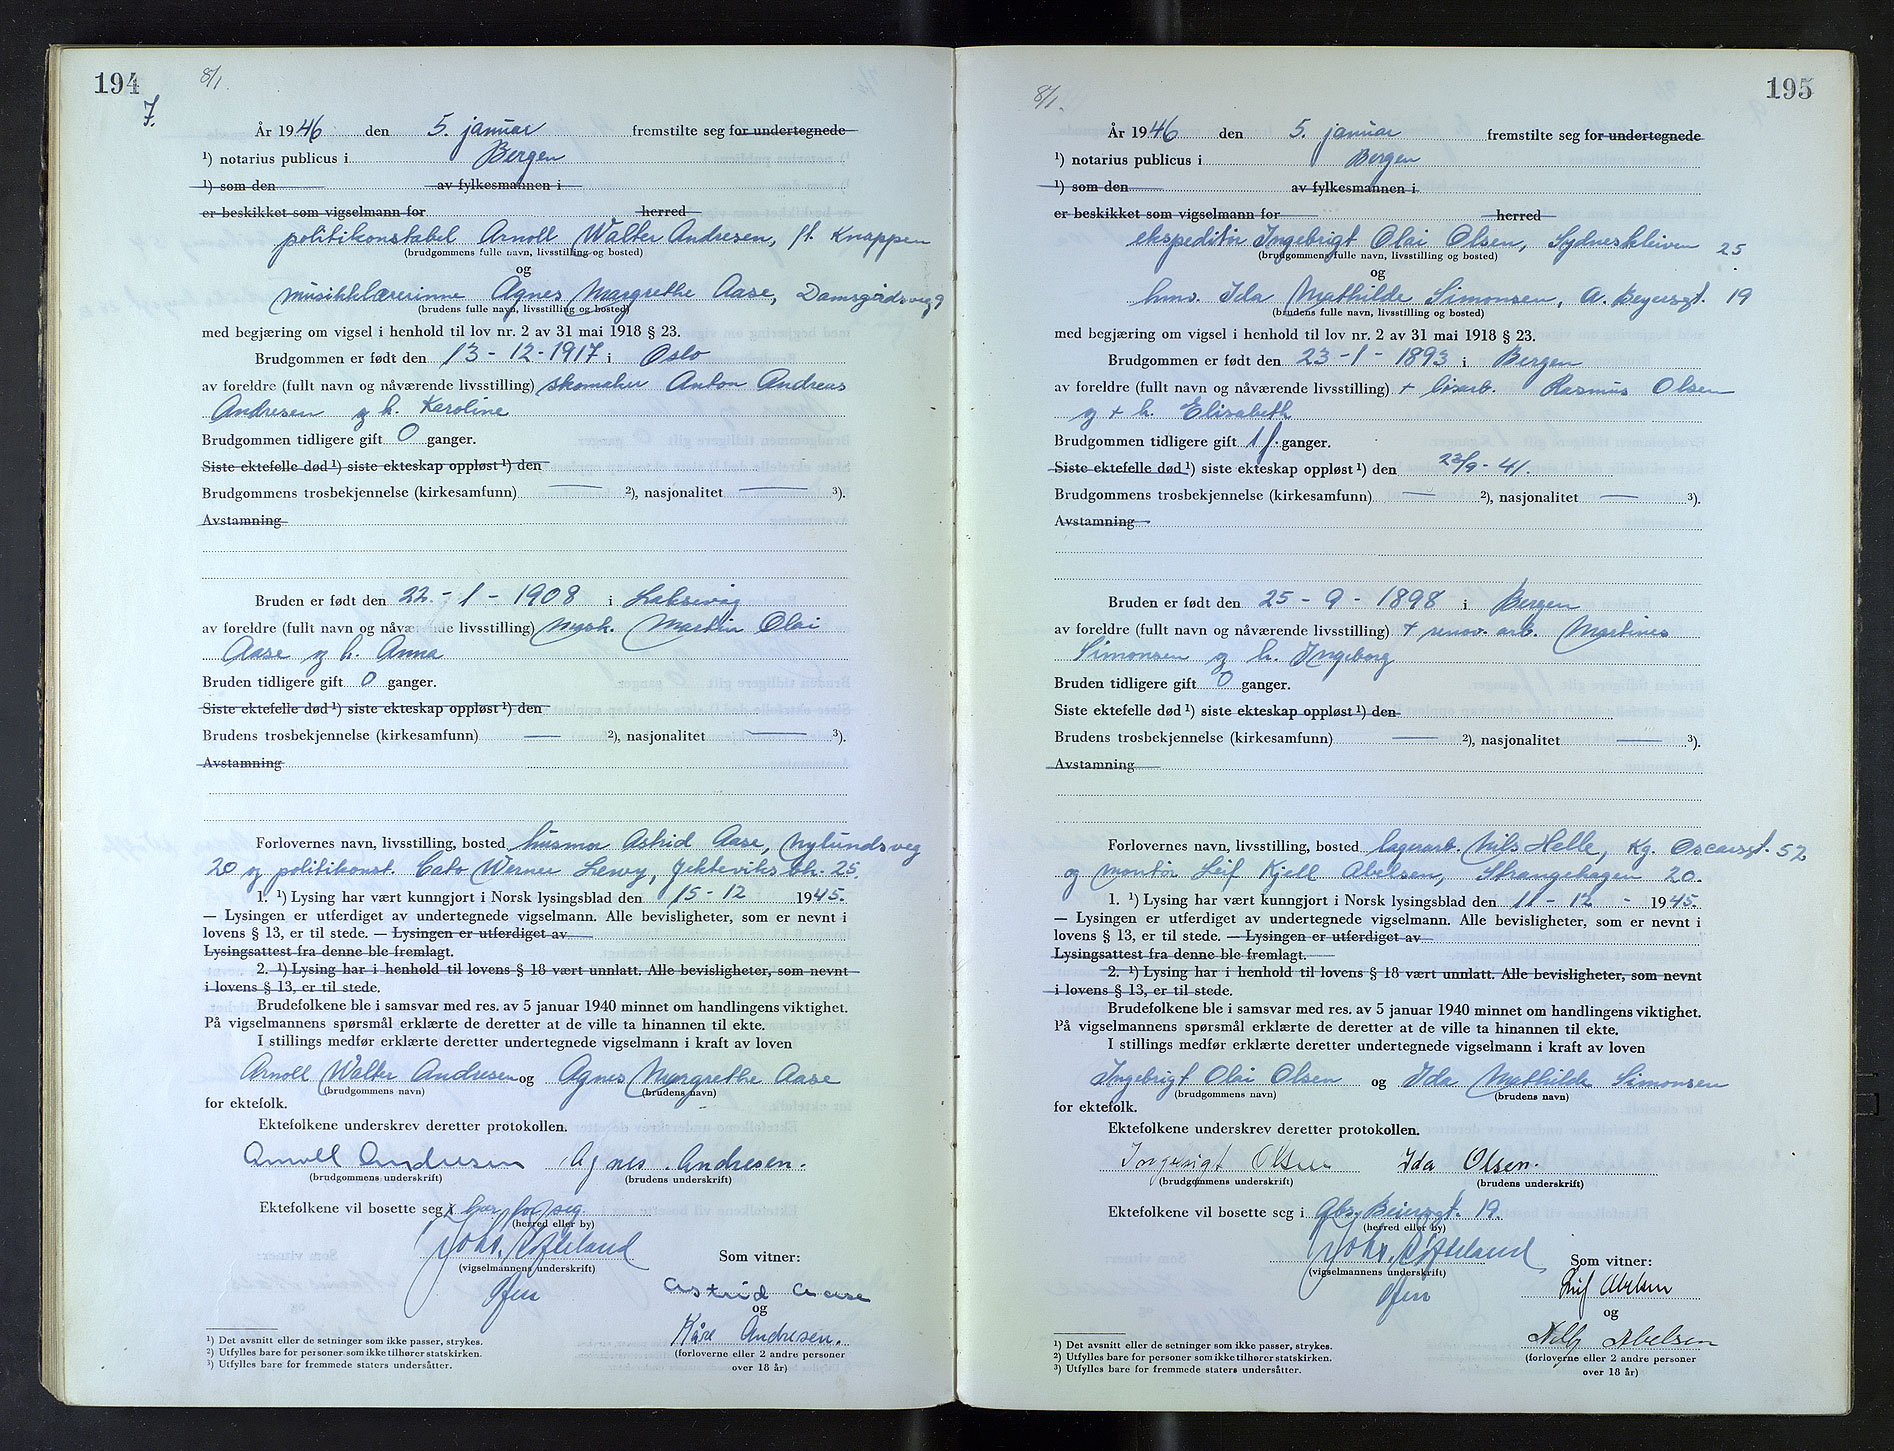 194
8/1.
7.
År 1946 den 5. januar fremstilte seg for undertegnede
¹) notarius publicus i Bergen
¹) som den av fylkesmannen i
er beskikket som vigselmann for herred
politikonstabel Arnoll Walter Andresen, ft. Knappen
(brudgommens fulle navn, livsstilling og bosted)
og
musikklærerinne Agnes Margrethe Aase, Damsgårdsveg 9
(brudens fulle navn, livsstilling og bosted)
med begjæring om vigsel i henhold til lov nr. 2 av 31 mai 1918 § 23.
Brudgommen er født den 13-12-1917 i Oslo
av foreldre (fullt navn og nåværende livsstilling) skomaker Anton Andreas
Andresen og h. Karoline
Brudgommen tidligere gift 0 ganger.
Siste ektefelle død ¹) siste ekteskap oppløst ¹) den
Brudgommens trosbekjennelse (kirkesamfunn) — ²), nasjonalitet — ³).
Avstamning
Bruden er født den 22.-1-1908 i Laksevåg
av foreldre (fullt navn og nåværende livsstilling) Martin Olai
Aase og h. Anna
Bruden tidligere gift 0 ganger.
Siste ektefelle død ¹) siste ekteskap oppløst ¹) den
Brudens trosbekjennelse (kirkesamfunn) — ²), nasjonalitet — ³).
Avstamning
Forlovernes navn, livsstilling, bosted husmor Astrid Aase, Nylundsveg
20 og politikonst. Cato Werner Lewy, Jekteviksbk. 25.
1. ¹) Lysing har vært kunngjort i Norsk lysingsblad den 15-12 1945.
— Lysingen er utferdiget av undertegnede vigselmann. Alle bevisligheter, som er nevnt i
lovens § 13, er til stede. — Lysingen er utferdiget av
Lysingsattest fra denne ble fremlagt.
2. ¹) Lysing har i henhold til lovens § 18 vært unnlatt. Alle bevisligheter, som nevnt
i lovens § 13, er til stede.
Brudefolkene ble i samsvar med res. av 5 januar 1940 minnet om handlingens viktighet.
På vigselmannens spørsmål erklærte de deretter at de ville ta hinannen til ekte.
I stillings medfør erklærte deretter undertegnede vigselmann i kraft av loven
Arnoll Walter Andresen og Agnes Margrethe Aase
(brudgommens navn) (brudens navn)
for ektefolk.
Ektefolkene underskrev deretter protokollen.
Arnoll Andresen Agnes Andresen.
(brudgommens underskrift) (brudens underskrift)
Ektefolkene vil bosette seg hver for seg
(herred eller by)
Som vitner:
(vigselmannens underskrift)
Astrid Aase
og
Kåre Andresen.
(forloverne eller 2 andre personer
over 18 år)
¹) Det avsnitt eller de setninger som ikke passer, strykes.
²) Utfylles bare for personer som ikke tilhører statskirken.
³) Utfylles bare for fremmede staters undersåtter.
195
8/1.
År 1946 den 5. januar fremstilte seg for undertegnede
¹) notarius publicus i Bergen
¹) som den av fylkesmannen i
er beskikket som vigselmann for herred
ekspeditør Ingebrigt Olai Olsen, Sydneskleiven 25
(brudgommens fulle navn, livsstilling og bosted)
og
hmv. Ida Mathilde Simonsen, A. Beyersgt. 19
(brudens fulle navn, livsstilling og bosted)
med begjæring om vigsel i henhold til lov nr. 2 av 31 mai 1918 § 23.
Brudgommen er født den 23-1-1893 i Bergen
av foreldre (fullt navn og nåværende livsstilling) + løsarb. Rasmus Olsen
og + h. Elisabeth
Brudgommen tidligere gift 1 ganger.
Siste ektefelle død ¹) siste ekteskap oppløst ¹) den 23/9-41.
Brudgommens trosbekjennelse (kirkesamfunn) — ²), nasjonalitet — ³).
Avstamning
Bruden er født den 25-9-1898 i Bergen
av foreldre (fullt navn og nåværende livsstilling) + renov. arb. Martines
Simonsen og h. Ingeborg
Bruden tidligere gift 0 ganger.
Siste ektefelle død ¹) siste ekteskap oppløst ¹) den
Brudens trosbekjennelse (kirkesamfunn) — ²), nasjonalitet — ³).
Avstamning
Forlovernes navn, livsstilling, bosted lagerarb. Nils Helle, Kg. Oscarsgt. 52
og montør Leif Kjell Abelsen, Strangehagen 20.
1. ¹) Lysing har vært kunngjort i Norsk lysingsblad den 11-12- 1945.
— Lysingen er utferdiget av undertegnede vigselmann. Alle bevisligheter, som er nevnt i
lovens § 13, er til stede. — Lysingen er utferdiget av
Lysingsattest fra denne ble fremlagt.
2. ¹) Lysing har i henhold til lovens § 18 vært unnlatt. Alle bevisligheter, som nevnt
i lovens § 13, er til stede.
Brudefolkene ble i samsvar med res. av 5 januar 1940 minnet om handlingens viktighet.
På vigselmannens spørsmål erklærte de deretter at de ville ta hinannen til ekte.
I stillings medfør erklærte deretter undertegnede vigselmann i kraft av loven
Ingebrigt Olai Olsen og Ida Mathilde Simonsen
(brudgommens navn) (brudens navn)
for ektefolk.
Ektefolkene underskrev deretter protokollen.
Ingebrigt Olsen Ida Olsen.
(brudgommens underskrift) (brudens underskrift)
Ektefolkene vil bosette seg i Abs. Beiersgt. 19.
(herred eller by)
Som vitner:
(vigselmannens underskrift)
Leif Abelsen
og
Nelly Abelsen
(forloverne eller 2 andre personer
over 18 år)
¹) Det avsnitt eller de setninger som ikke passer, strykes.
²) Utfylles bare for personer som ikke tilhører statskirken.
³) Utfylles bare for fremmede staters undersåtter.